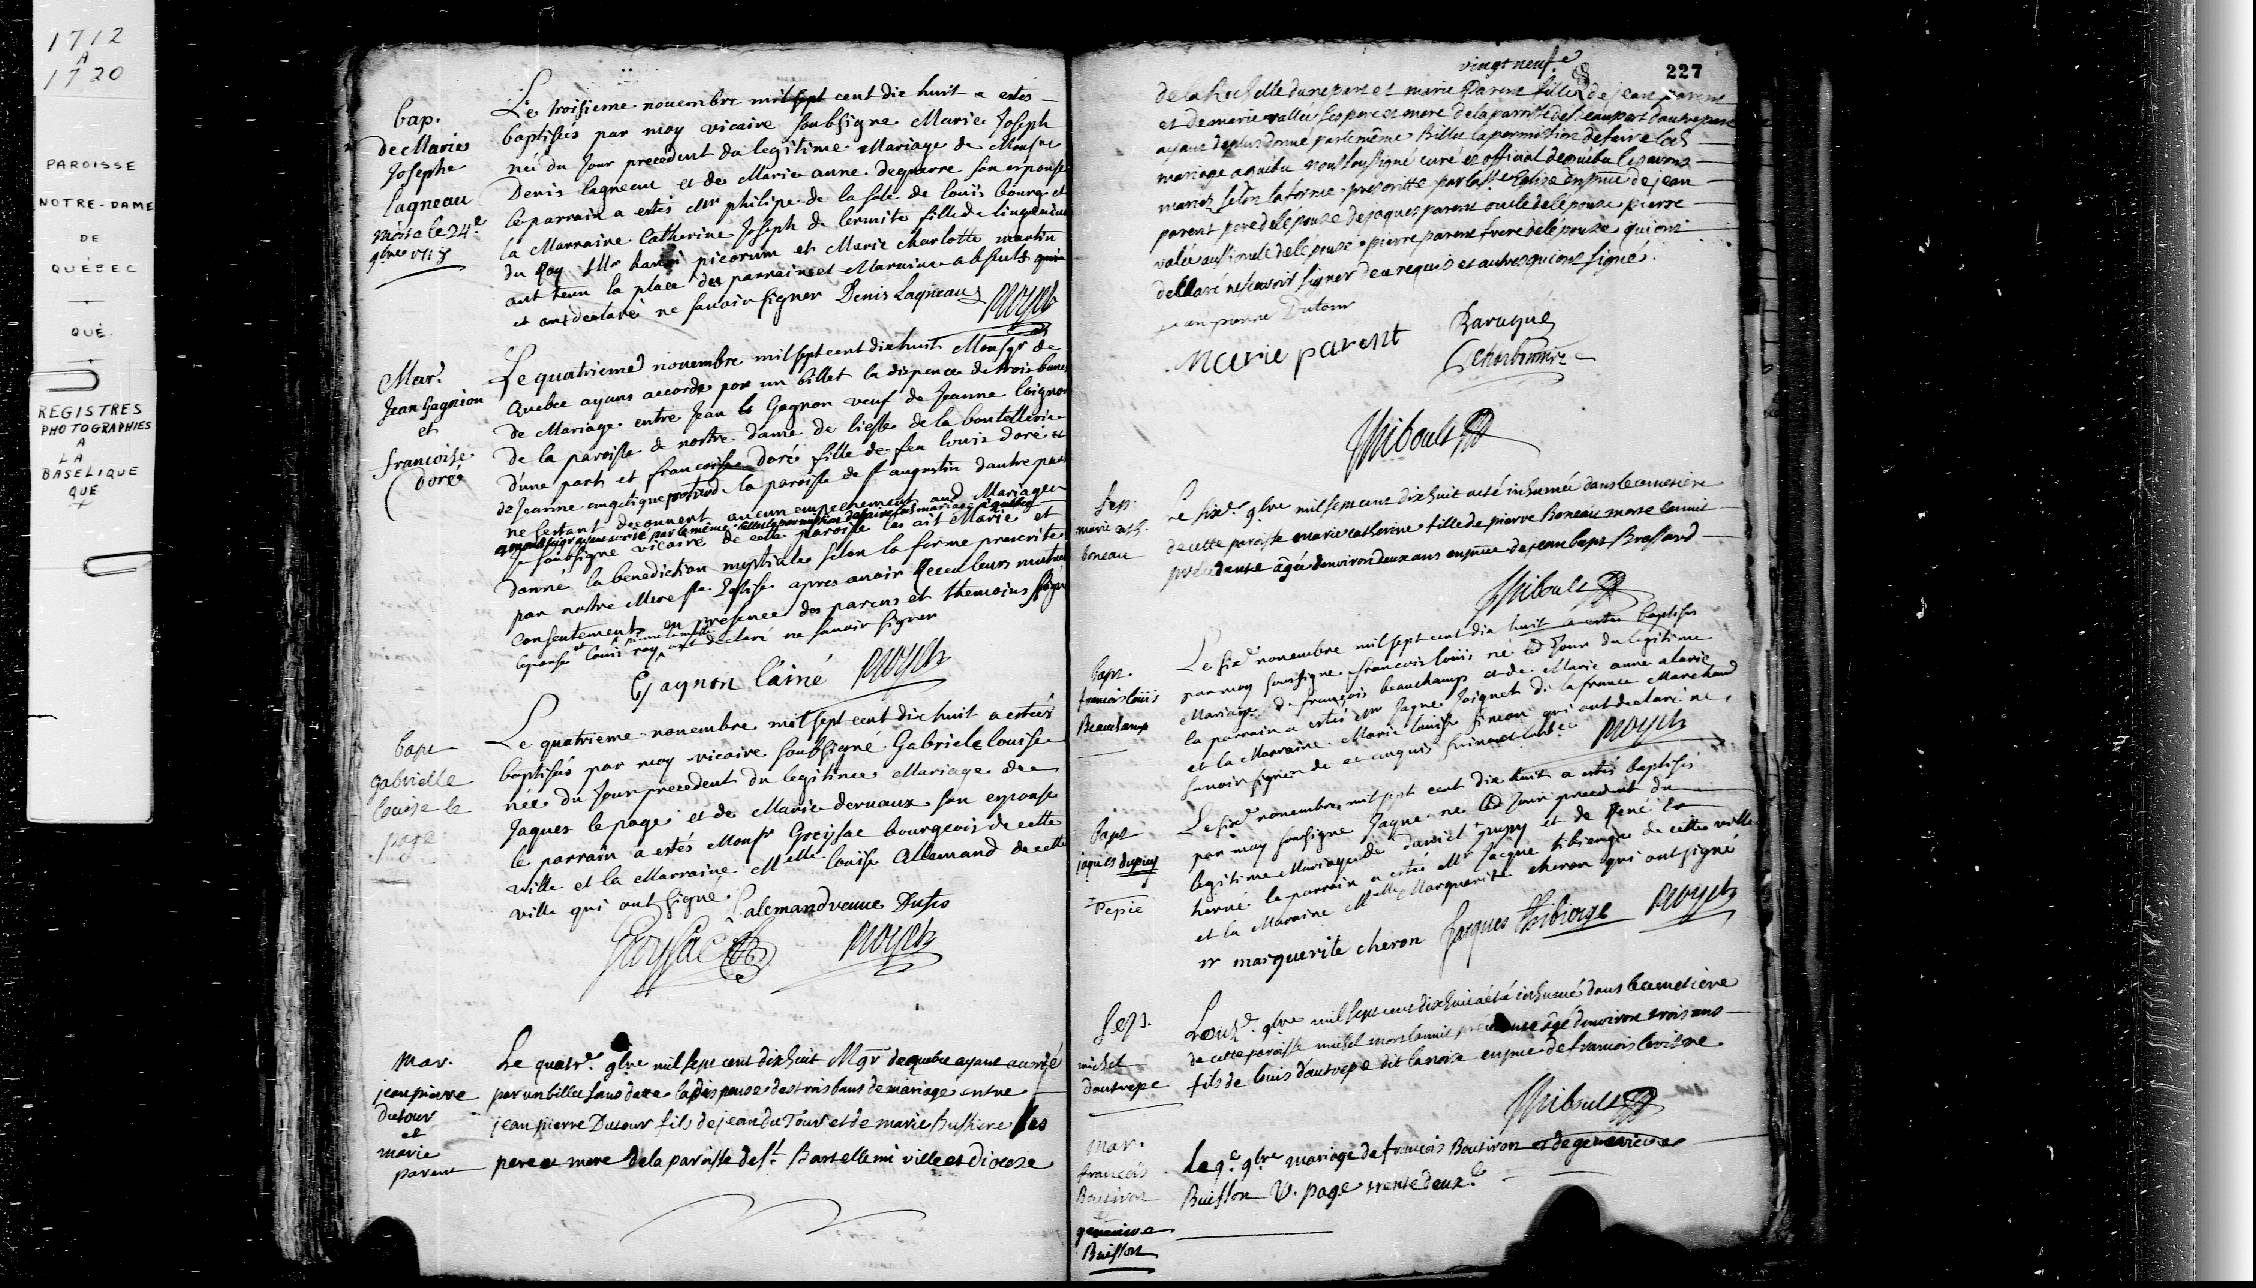 1712
A
1720
PAROISSE
NOTRE-DAME
DE
QUÉBEC
QUÉ.
REGISTRES
PHOTOGRAPHIES
A
LA
BASELIQUE
QUE
Bap.
de Marie
Josephe
lagneau
morte le 24e
9bre 1718
Le troisieme novembre mil sept cent dix huit a estés
baptisés par moy vicaire soubsigne Marie Joseph
née du Jour precedent du legitime Mariage de Monsr
Denis lagneau et de Marie anne son espouse
le parrain a estés Mr philipe de la de louis bourg et
la Marraine Catherine Joseph de lermite fille de lingenieur
du Roy Mr picorum et Marie Charlotte martin
ont tenu la place des parrain et Maraine absents qui
et ont declaré ne savoir signer Denis Lagneau
Mar.
Jean Gagnion
et
francoise
Doré
Le quatrieme novembre mil sept cent dix huit Monsgr de
Quebec ayant accordé par un billet la dispence de trois bans
de Mariage entre Jean Gagnon veuf de Jeanne loignon
de la paroisse de nostre dame de liesse de la bouteillerie
d'une part et francoise Doré fille de feu louis doré et
de Jeanne angelique la paroisse de st augustin dautre part
ne sestant decouvert aucun empechement aud Mariage
Je soubsigne vicaire de cette paroisse les ait Marié et
donné la benediction nuptiale selon la forme prescrite
par nostre Mere ste Eglise apres avoir Receu leurs mutuel
consentement en presence des parens et themoins
lepouse et louis roy ont declaré ne savoir signer
Gagnon lainé
Bapt
gabrielle
louise le
page
Le quatrieme novembre mil sept cent dix huit a estéés
baptisés par moy vicaire soubsigné Gabriele louise
née du Jour precedent du legitime Mariage de
Jaques le page et de Marie dervaux son espouse
le parrain a estés Monsr Greissac bourgeois de cette
ville et la Marraine Melle louise Allemand de cette
ville qui ont signé Lalemand veuve
Mar.
jean pierre
Dutour
et
marie
parent
Le quatre 9bre mil sept cent dix huit Mgr de quebec ayant accordé
par un billet sans date la dispense des trois bans de mariage entre
jean pierre Dutour fils de jean du Tour et de marie Bussiere ses
pere et mere de la paroisse de st Bartellemi ville et diocese
vingt neufe
227
de la Rochelle dune part et marie Parent fille de jean parent
et de marie vallée ses pere et mere de la parroisse de Beauport dautre part
ayant de plus donné par le même Billet la permission de faire led
mariage a quebec nous soussigné curé et official de quebec les avons
mariez selon la forme prescritte par la ste Eglise en pnce de jean
parent pere de lépouse de jaques parent oncle de lépouse pierre
valée aussi oncle de lépouse pierre parent frere de lépouse qui ont
declaré ne scavoir signer de ce requis et autres qui ont signé.
jean pierre Dutour
Marie parent
Thibault
Sep.
marie cath.
boneau
Le six 9bre mil sept cent dix huit a eté inhumée dans le cimetiere
de cette paroisse marie catherine fille de pierre Boneau morte la nuit
précédente agée denviron deux ans en pnce de jean bapt Brassard
Thibault
bapt.
francois louis
Beauchamp
Le six novembre mil sept cent dix huit a estes baptises
par moy sousigne francois louis né led Jour du legitime
Mariage de françois beauchamp et de Marie anne alarie
la parrain a estés Mr Jaque de la france Marchand
et la Marraine Marie louise qui ont declaré ne
savoir signer de ce
Bapt
jaques dupuy
Le six novembre mil sept cent dix huit a estés baptisés
par moy sousigne Jaque ne led Jour precedent du
legitime Mariage de daniel pupy et de René la
herné le parrain a estés Mr Jacque tibierge de cette ville
et la Maraine Melle Marguerite cheron qui ont signe
marguerite cheron Jaques Thibierge
Sep.
michel
dautrepe
9bre mil sept cent dix huit a été inhumé dans le cimetiere
de cette paroisse michel mort la nuit precedente agé denviron trois ans
fils de louis dautrepe dit lanoise en pnce de francois
Thibault
Mar.
francois
Boutiron
genevieve
Buisson
Le 9e 9bre mariage de francois Boutiron et de genevieve
Buisson V. page trente deux.e